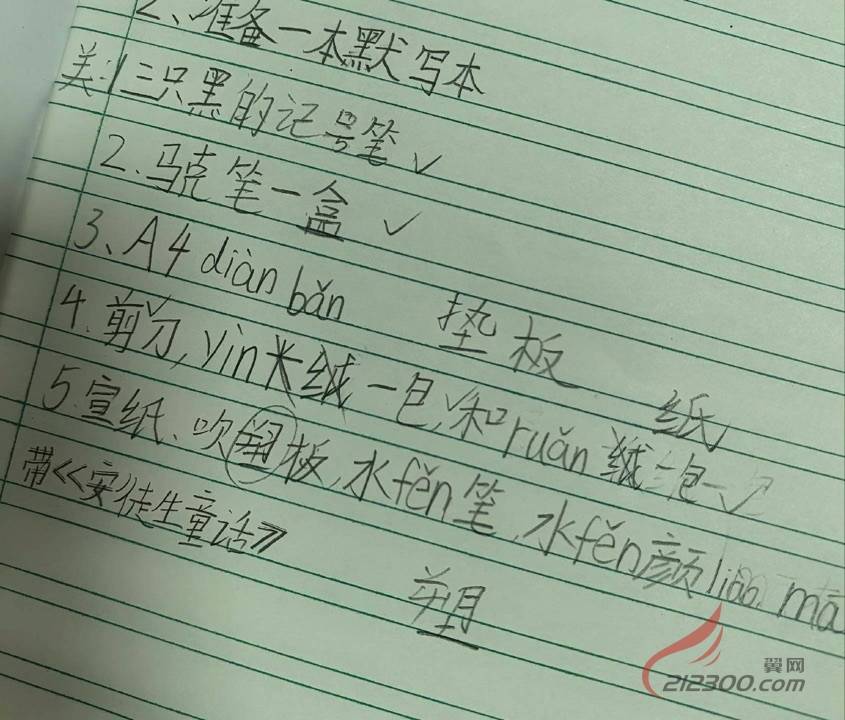 2、准备一本默写本
美:1三只黑的记号笔✓
2.马克笔一盒 ✓
3、A4 diàn bǎn 垫板
4.剪刀,yìn米绒一包,和ruǎn 纸
5.宣纸、吹板,水fěn笔,水fěn颜liào, mā
带<<安徒生童话>>
塑
翼网
212300.com